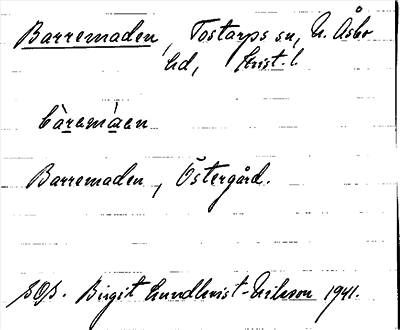 Barremaden, Tostarps sn, N. Åsbo
hd, Krist. l.
bàremáen
Barremaden, Östergård.
SOS. Birgit Lundkvist-Nilsson 1941.